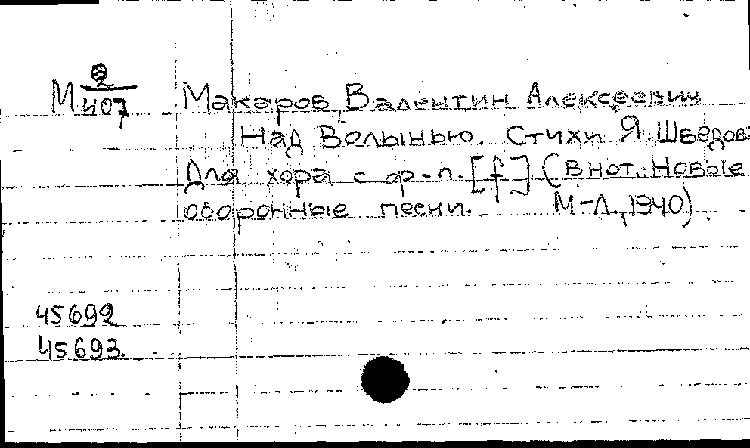 М 2/407
Макаров, Валентин Алексеевич
Над Волынью. Стихи Я. Шведова
Для хора с ф-п. [f] (В нот.: Новые
оборонные песни. М-Л., 1940)
45692
45693